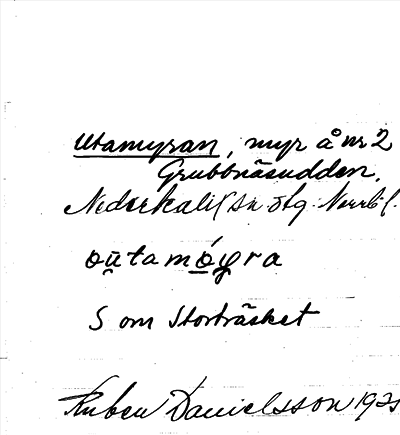 Utamyran, myr å nr 2
Grubbnäsudden,
Nederkalix sn. ötg. Norrb. l.
oūtamóyra
S om Storträsket
Ruben Danielsson 192